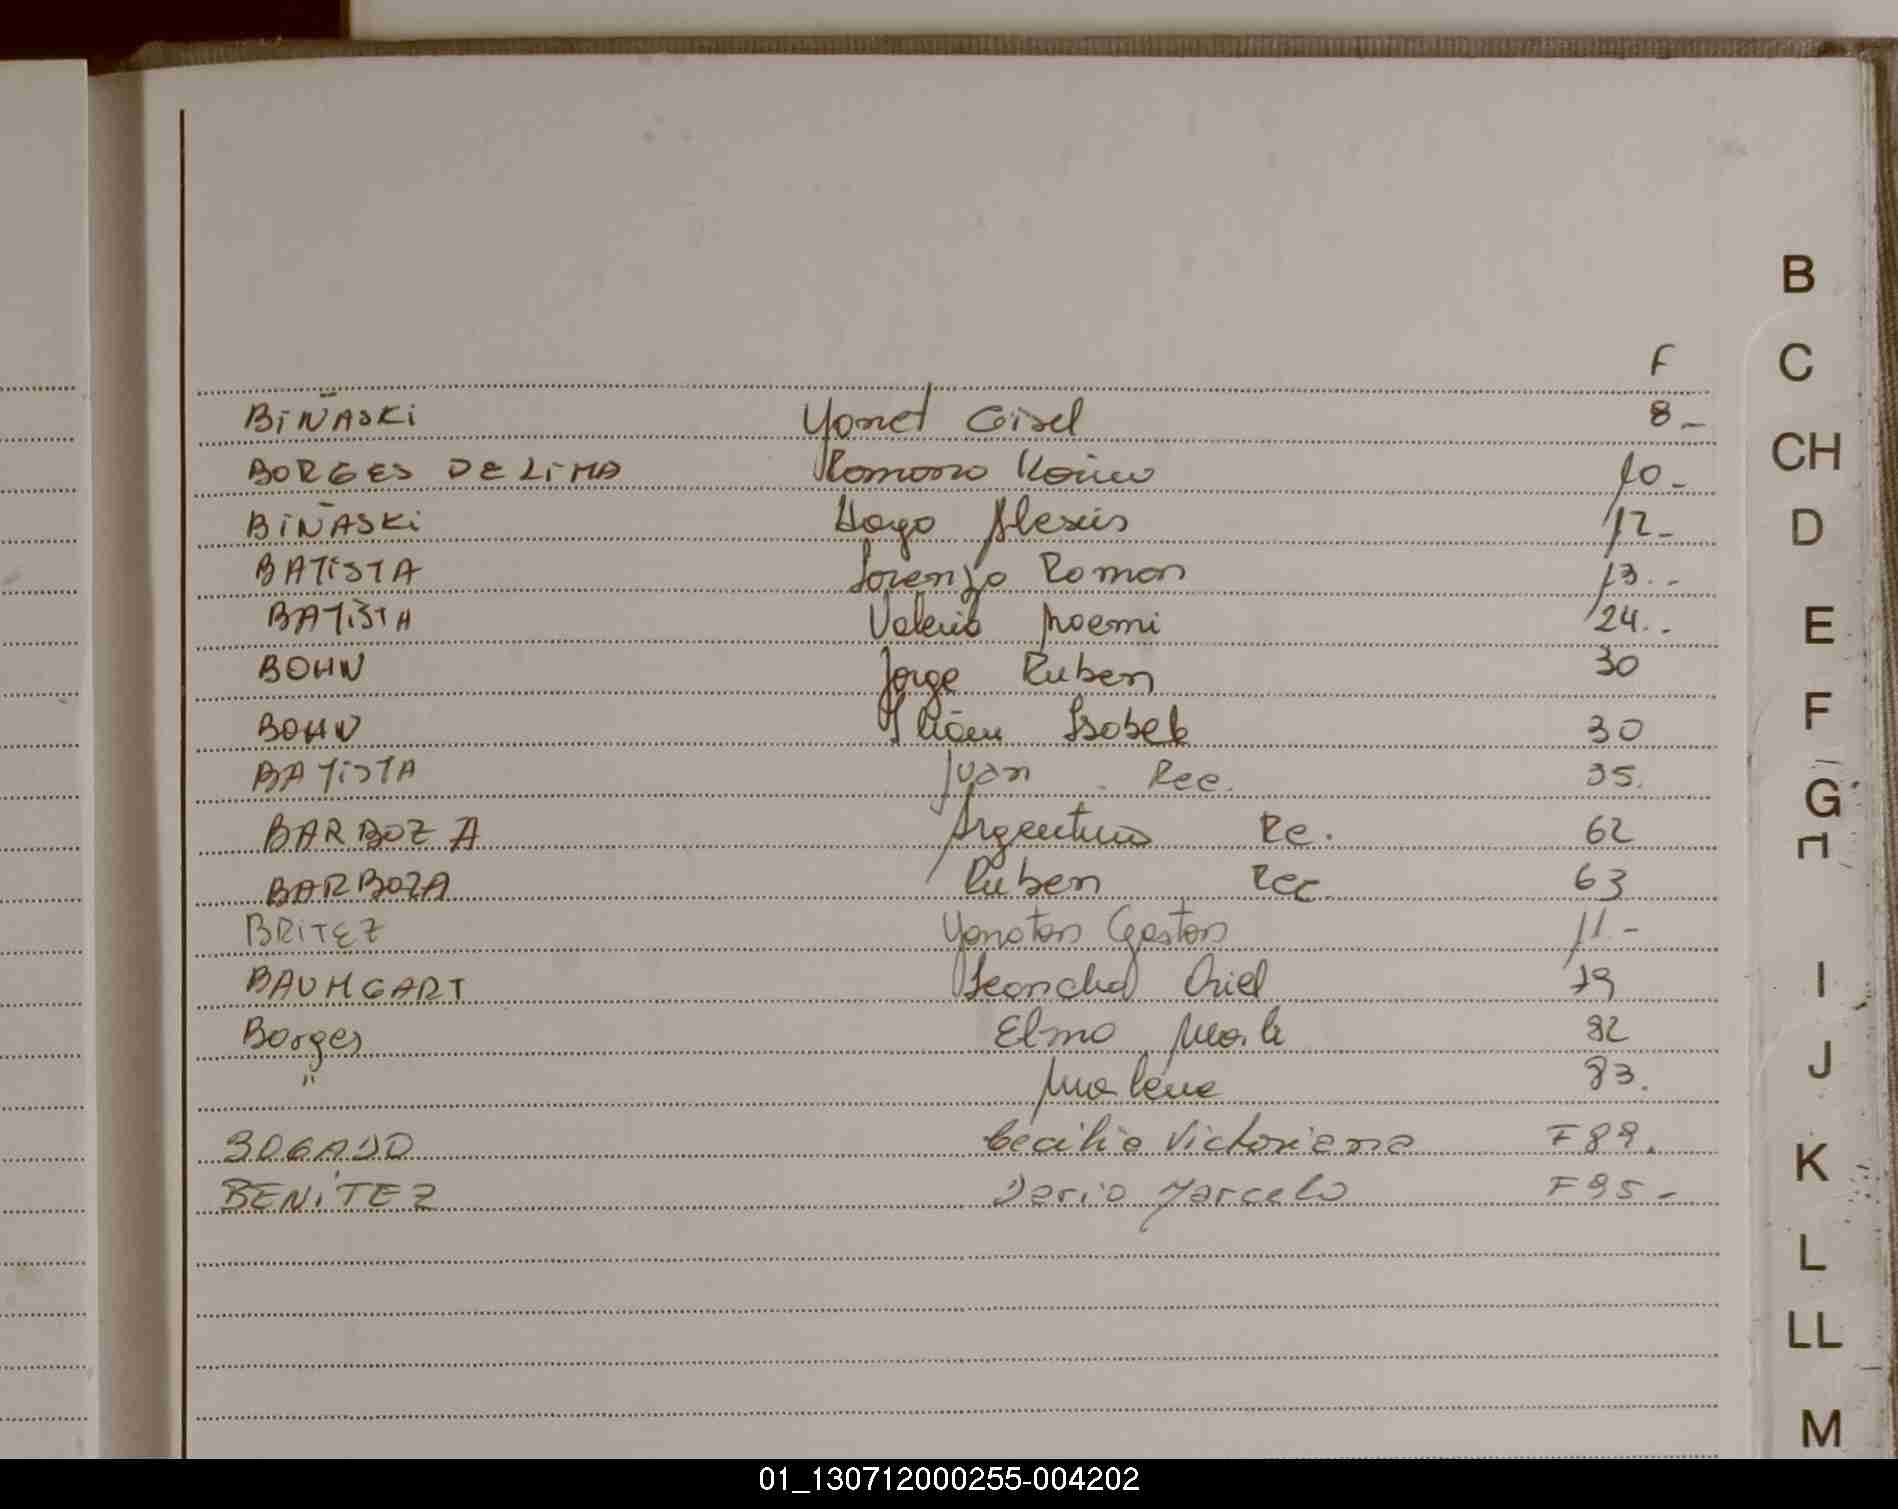 F
BIÑASKI Yanet Gisel 8-
BORGES DE LIMA Romano 10-
BIÑASKI Hugo Alexis 12-
BATISTA Lorenzo Roman 13..
BATISTA Valeria Noemi 24..
BOHN Jorge Ruben 30
BOHN Isabel 30
BATISTA Juan Rec. 35.
BARBOZA Argentina Re. 62
BARBOZA Ruben Rec 63
BRITEZ Yonatan Gaston 11.-
BAUMGART Oriel 79
Borges Elma 82
" Marlene 83.
BOGADO Cecilia Victoriana F 89.
BENITEZ Dario Marcelo F 95-
B
C
CH
D
E
F
G
I
J
K
L
LL
M
01_130712000255-004202